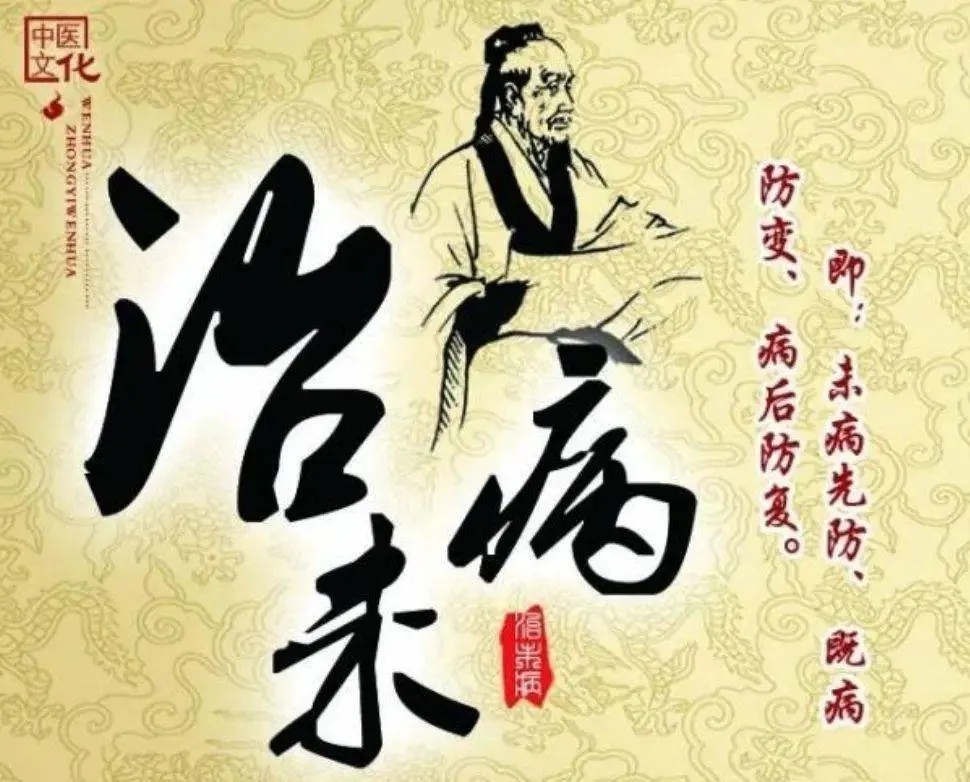 中医
文化
WENHUA
ZHONGYIWENHUA
治未病
即：未病先防、既病
防变、病后防复。
治未病